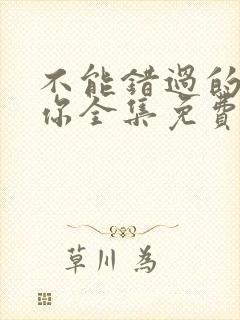 不能错過的
你全集免費
草川 為